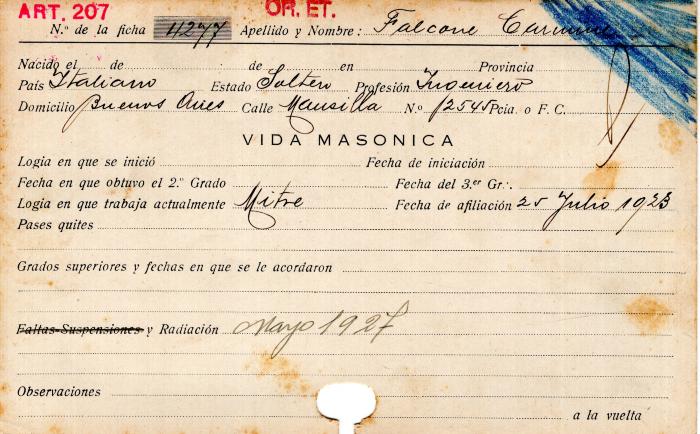 ART. 207 OR. ET.
N.º de la ficha 11277 Apellido y Nombre: Falcone Carmine
Nacido el de de en Provincia
País Italiano Estado Soltero Profesión Ingeniero
Domicilio Buenos Aires Calle Mansilla N.º 2545 Pcia. o F. C.
VIDA MASONICA
Logia en que se inició Fecha de iniciación
Fecha en que obtuvo el 2.º Grado Fecha del 3.er Gr∴
Logia en que trabaja actualmente Mitre Fecha de afiliación 25 Julio 1923
Pases quites
Grados superiores y fechas en que se le acordaron
Faltas-Suspensiones y Radiación Mayo 1927
Observaciones
a la vuelta